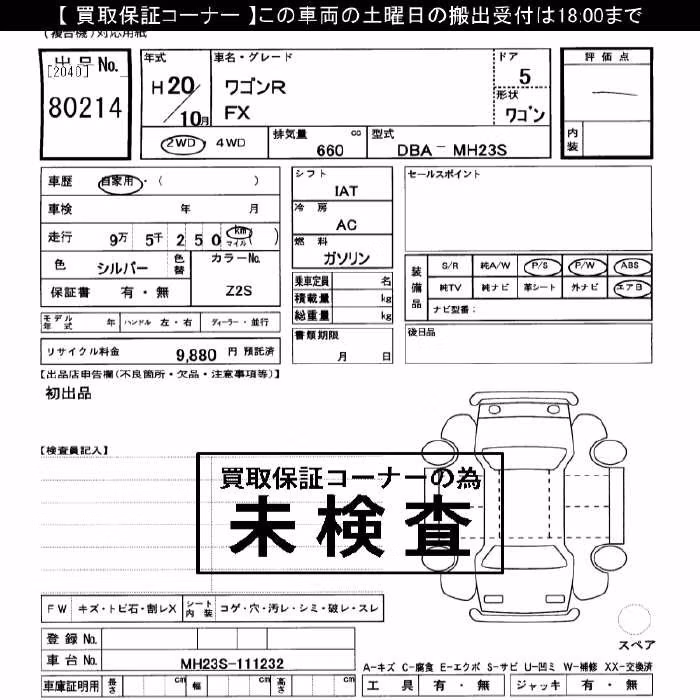 【 買取保証コーナー 】この車両の土曜日の搬出受付は18:00まで
(複合機)対応用紙
出品No.
[2040]
80214
年式
H20/10月
車名・グレード
ワゴンR
FX
ドア
5
形状
ワゴン
評価点
内装
2WD・4WD
排気量 cc
660
型式
DBA－MH23S
車歴 自家用・( )
車検 年 月
走行 9万 5千 2 5 0 km マイル ( )
色 シルバー 色替
カラーNo.
Z2S
保証書 有・無
シフト
IAT
冷房
AC
燃料
ガソリン
乗車定員 名
積載量 kg
総重量 kg
書類期限
月 日
セールスポイント
装備品
S/R 純A/W P/S P/W ABS
純TV 純ナビ 革シート 外ナビ エアB
ナビ型番:
後日品
モデル年式 年 ハンドル 左・右 ディーラー・並行
リサイクル料金 9,880 円 預託済
【出品店申告欄(不良箇所・欠品・注意事項等)】
初出品
【検査員記入】
買取保証コーナーの為
未検査
FW キズ・トビ石・割レX シート内装 コゲ・穴・汚レ・シミ・破レ・スレ
登録No.
車台No. MH23S-111232
車庫証明用 長さ cm 幅 cm 高さ cm
スペア
A-キズ C-腐食 E-エクボ S-サビ U-凹ミ W-補修 XX-交換済
工具 有・無 ジャッキ 有・無